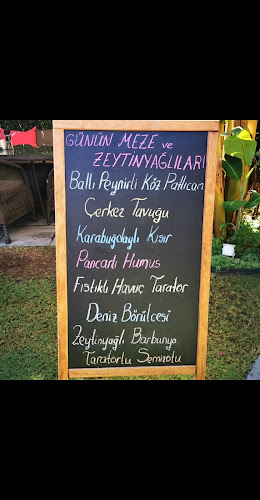 GÜNÜN MEZE ve
ZEYTİNYAĞLILARI
Ballı Peynirli Köz Patlıcan
Çerkez Tavuğu
Karabuğdaylı Kısır
Pancarlı Humus
Fıstıklı Havuç Tarator
Deniz Börülcesi
Zeytinyağlı Barbunya
Taratorlu Semizotu